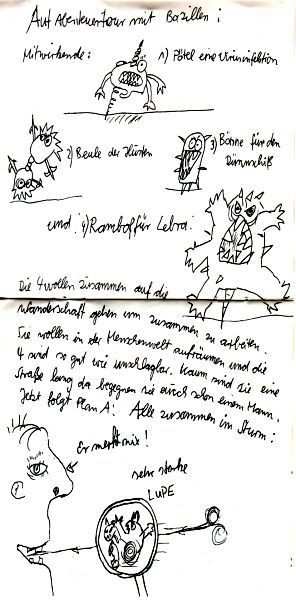 Auf Abenteuertour mit Bazillen:
Mitwirkende: 1) Pötel eine Virusinfektion
2) Beule der Husten
3) Bönne für den Dünnschiß
und: 4) Rambolf für Lebra.
Die 4 wollen zusammen auf die
Wanderschaft gehen um zusammen zu arbeiten.
Sie wollen in der Menschenwelt aufräumen und die
4 sind so gut wie unschlagbar. Kaum sind sie eine
Straße lang da begegnen sie auch schon einem Mann.
Jetzt folgt Plan A: Alle zusammen im Sturm:
Er merkt nix!
sehr starke
LUPE